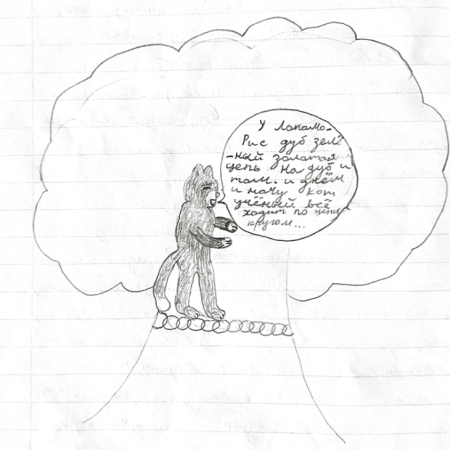 У Лакамо-
Рис дуб зелё
-ный золотая
цепь на дуб и
том. и днём
и начу кот
учёный всё
ходит по цепи
кругом...